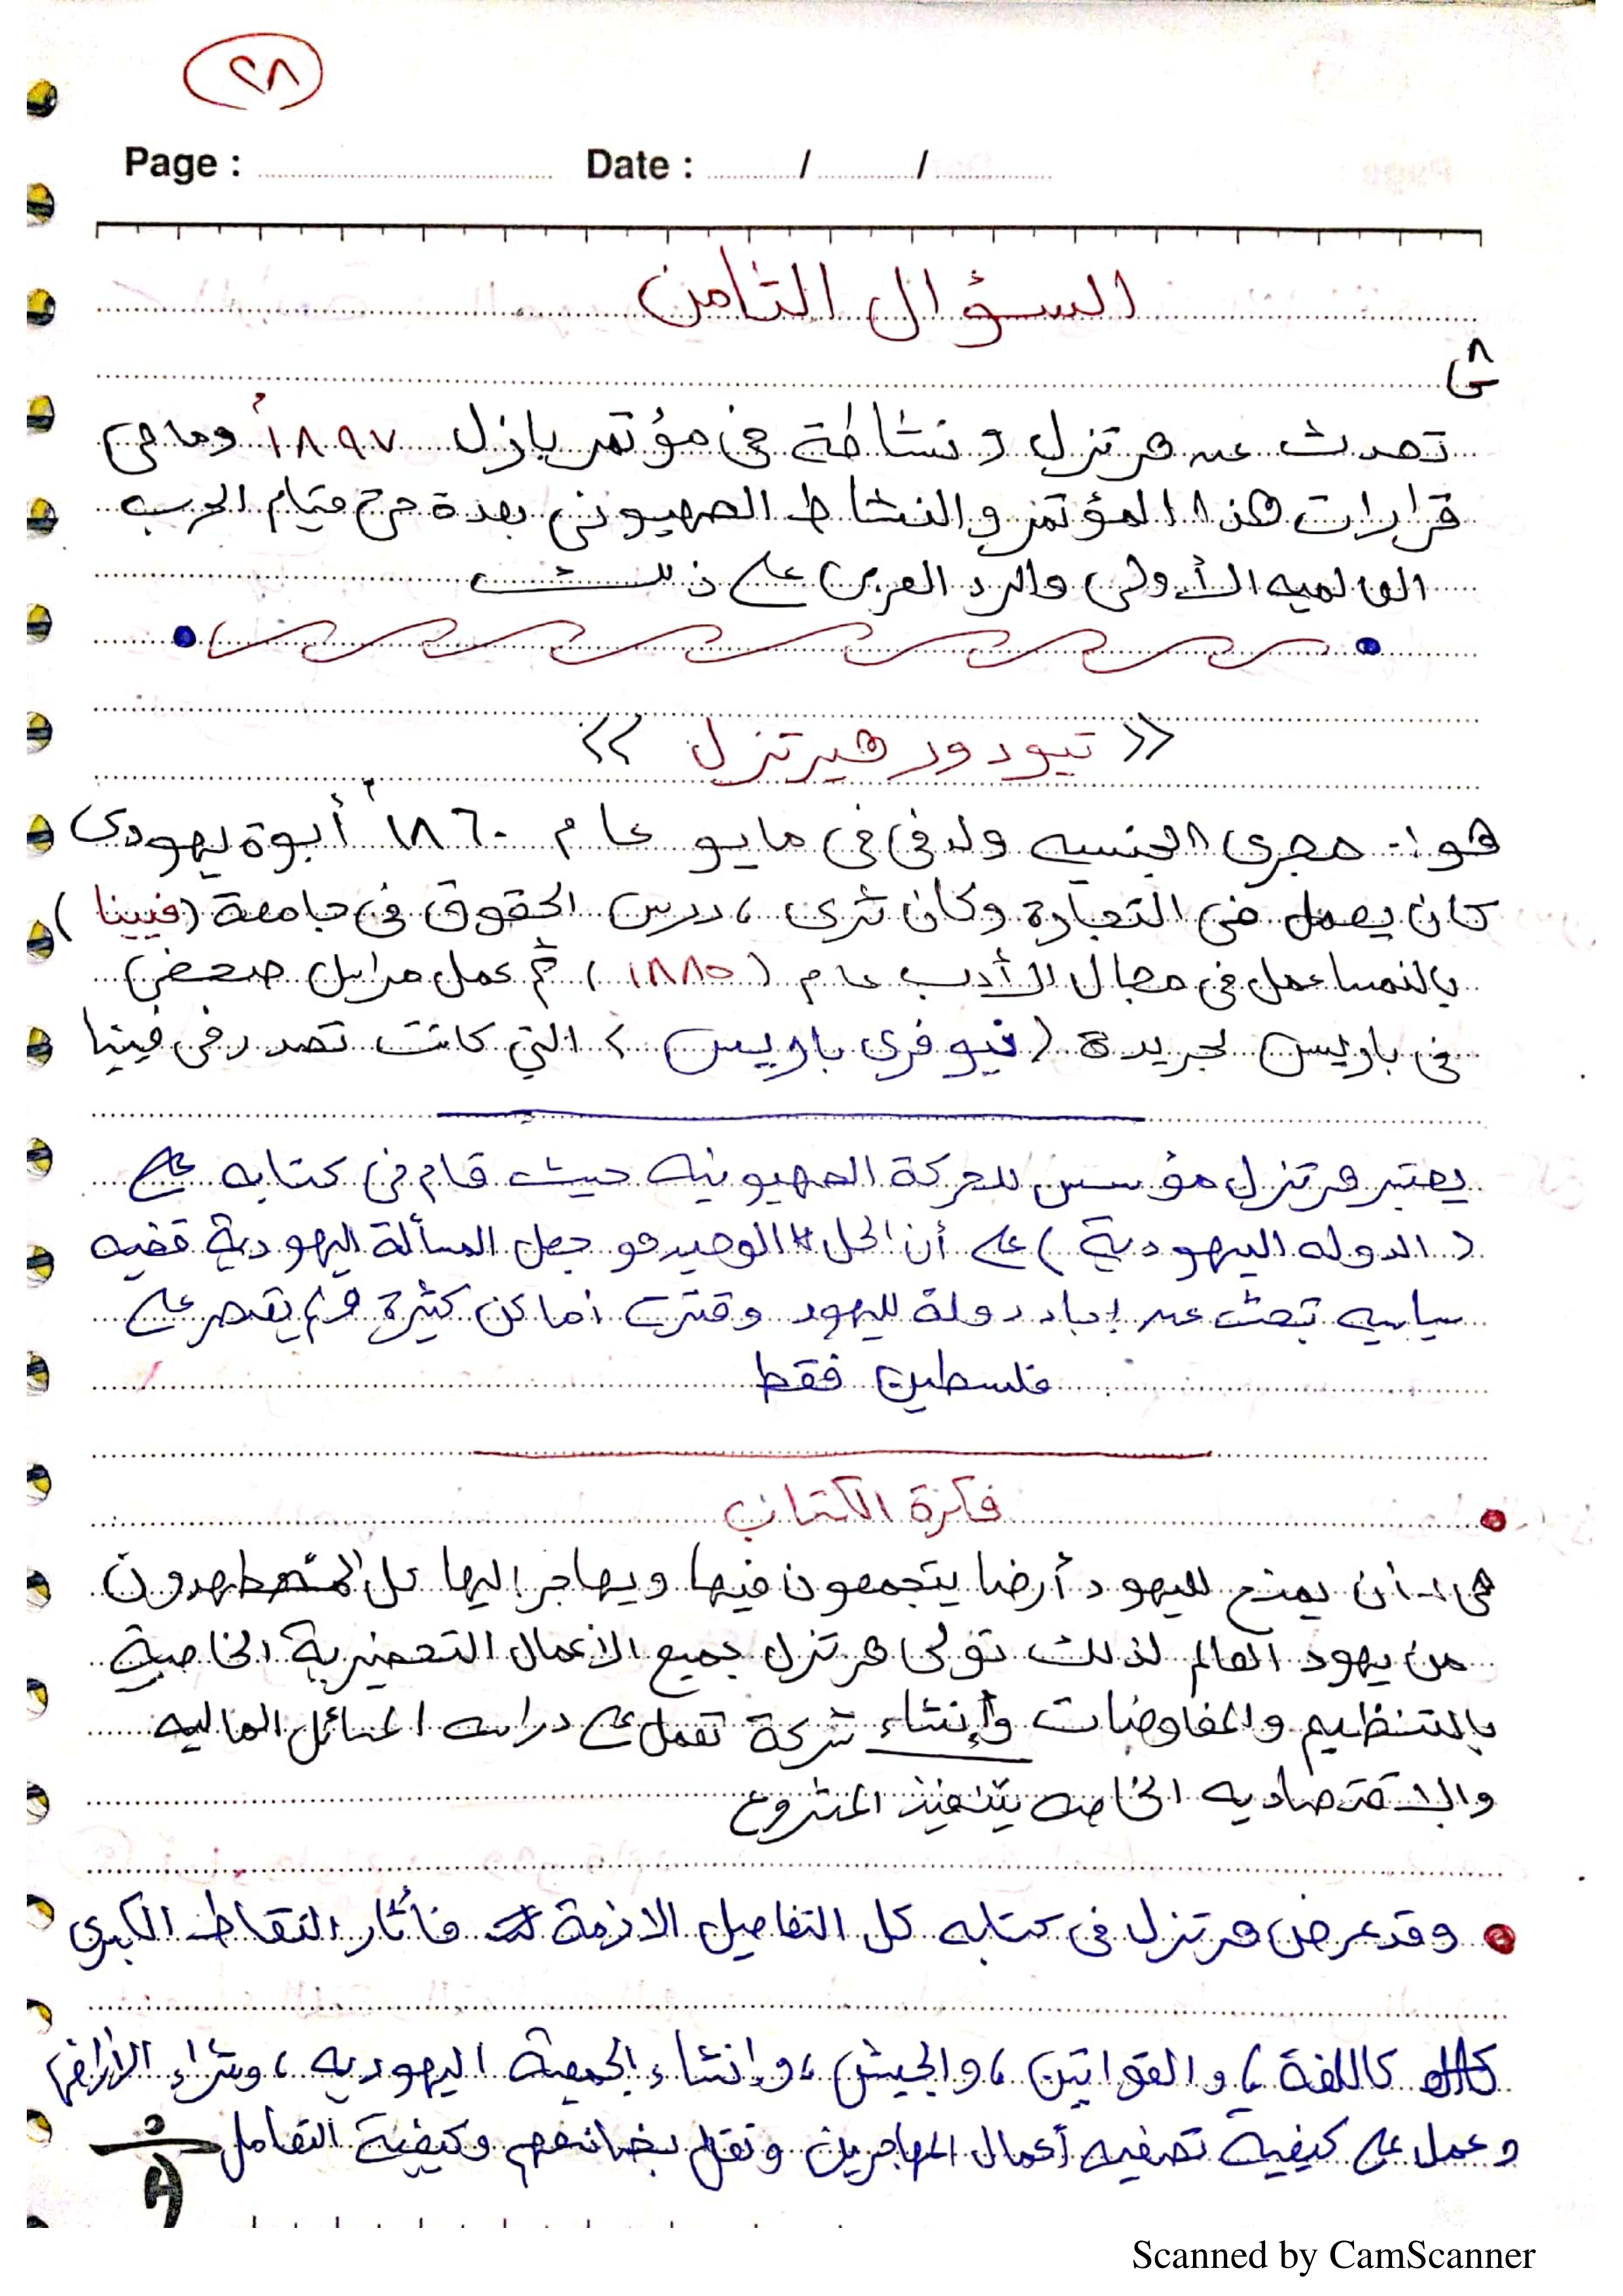 ٢٨
Page : Date : / /
السؤال الثامن
س٨
تحدث عن هرتزل ونشاطة فى مؤتمر بازل ١٨٩٧م وما هى
قرارات هذا المؤتمر والنشاط الصهيونى بعدة حتى قيام الحرب
العالميه الأولى والرد العربى على ذلك
<< تيودور هيرتزل >>
هو :- مجرى الجنسيه ولد فى فى مايو عام ١٨٦٠م أبوة يهودى
كان يعمل فى التجارة وكان ثرى ، درس الحقوق فى جامعة (فيينا)
بالنمسا عمل فى مجال الأدب عام (١٨٨٥) ثم عمل مراسل صحفى
فى باريس لجريدة (نيو فرى باريس) التى كانت تصدر فى فينيا
يعتبر هرتزل مؤسس للحركة الصهيونيه حيث قام فى كتابه على
(الدوله اليهودية) على أن الحل الوحيد هو جعل المسألة اليهودية قضيه
سياسيه تبحث عن إيجاد دولة لليهود وقترح أماكن كثيرة ولم يقصر على
فلسطين فقط
فكرة الكتاب
هى :- أن يمنح لليهود أرضا يتجمعون فيها ويهاجر إليها كل المضطهدون
من يهود العالم لذلك تولى هرتزل جميع الأعمال التحضيرية الخاصة
بالتنظيم والمفاوضات وإنشاء شركة تعمل على دراسه المسائل الماليه
والاقتصاديه الخاصه بتنفيذ المشروع
وقد عرض هرتزل فى كتابه كل التفاصيل الازمة فأثار النقاط الكبرى
كاللغة ، والقوانين ، والجيش ، وإنشاء الجمعية اليهوديه ، وشراء الأراضى
وعمل على كيفية تصفيه أعمال المهاجرين ونقل بضائعهم وكيفية التعامل
Scanned by CamScanner